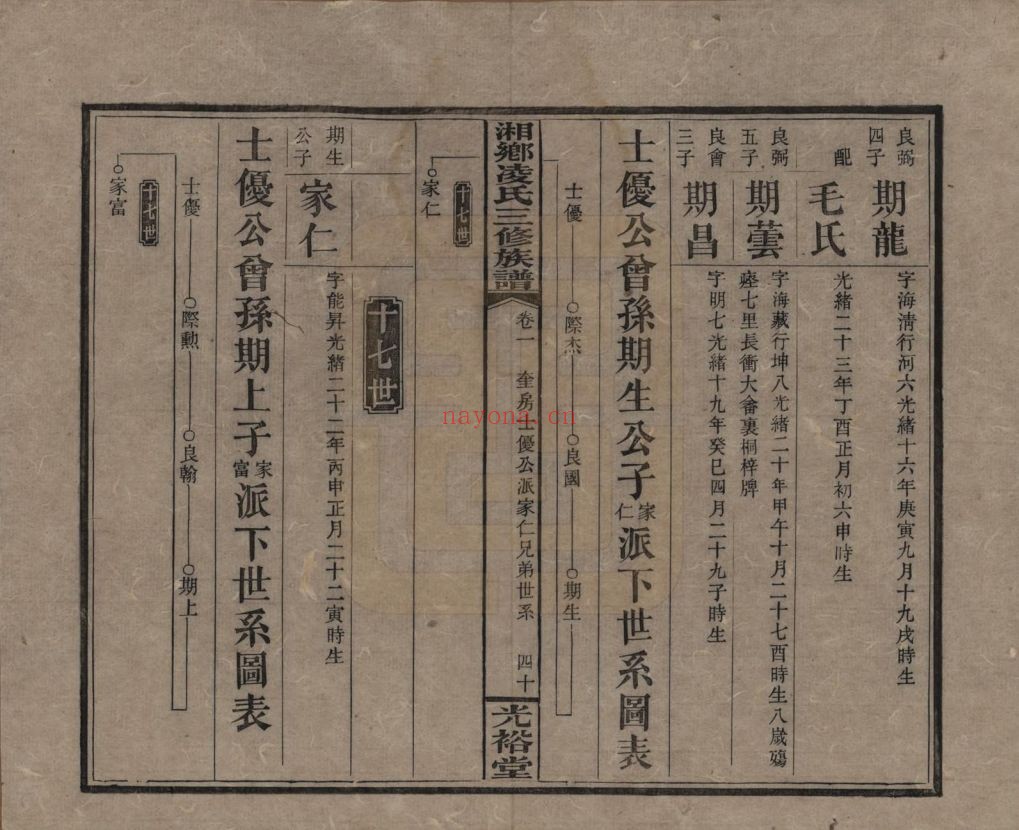 良弼
四子
期龍
字海淸行河六光緒十六年庚寅九月十九戌時生
配
毛氏
光緒二十三年丁酉正月初六申時生
良弼
五子
期蕓
字海藏行坤八光緒二十年甲午十月二十七酉時生八歲殤
瘞七里長衝大畲裏桐梓牌
良會
三子
期昌
字明七光緒十九年癸巳四月二十九子時生
士優公曾孫期生公子家仁派下世系圖表
士優
際杰
良國
期生
湘鄉凌氏三修族譜
卷一
奎房士優公派家仁兄弟世系
四十
光裕堂
十七世
家仁
十七世
期生
公子
家仁
字能昇光緒二十二年丙申正月二十二寅時生
士優公曾孫期上子家富派下世系圖表
士優
際勲
良翰
期上
十七世
家富
nayona.cn